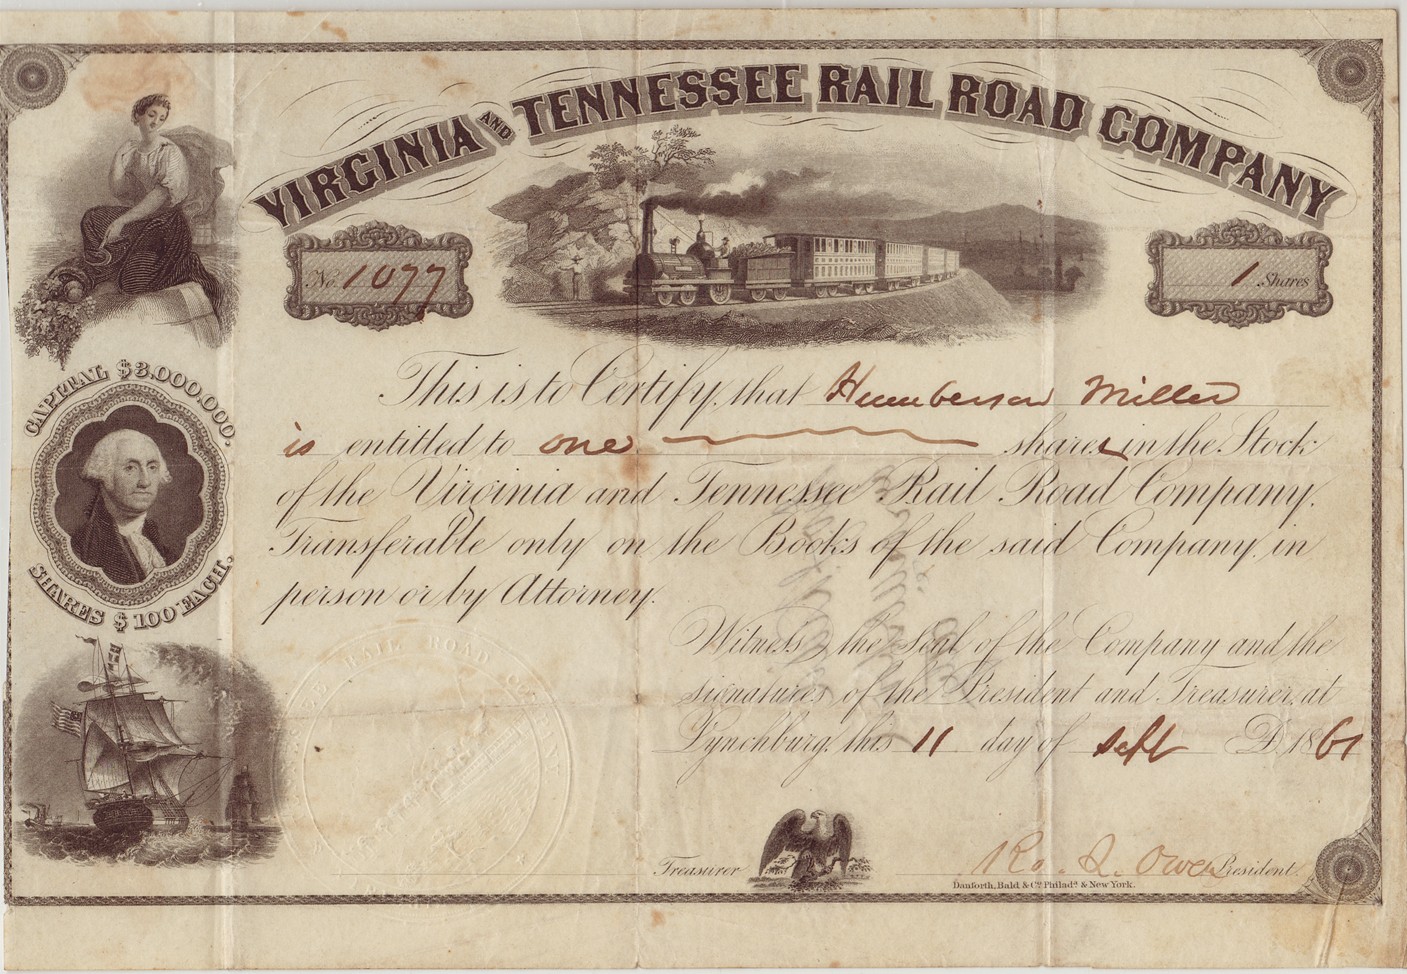 VIRGINIA AND TENNESSEE RAIL ROAD COMPANY
No. 1077
1 Shares
CAPITAL $3.000.000.
SHARES $100 EACH.
This is to Certify, that Miller
is entitled to one shares in the Stock
of the Virginia and Tennessee Rail Road Company.
Transferable only on the Books of the said Company, in
person or by Attorney.
Witness, the Seal of the Company and the
signatures of the President and Treasurer, at
Lynchburg, this 11 day of Sept D. 1861
RAIL ROAD COMPANY
Treasurer
Ro. L. Owen President.
Danforth, Bald & Co. Philada. & New York.